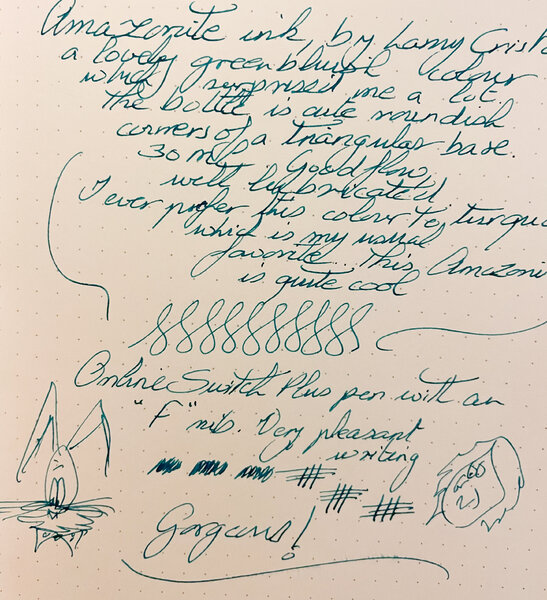 Amazonite ink, by Lamy Crista
a lovely green bluish colour
which surprised me a lot.
The bottle is cute roundish
corners of a triangular base.
30 ml. Good flow,
well lubricated.
I ever prefer this colour to turquo
which is my usual
favorite. This Amazoni
is quite cool
Online Switch Plus pen with an
"F" nib. Very pleasant
writing
Gorgeous!